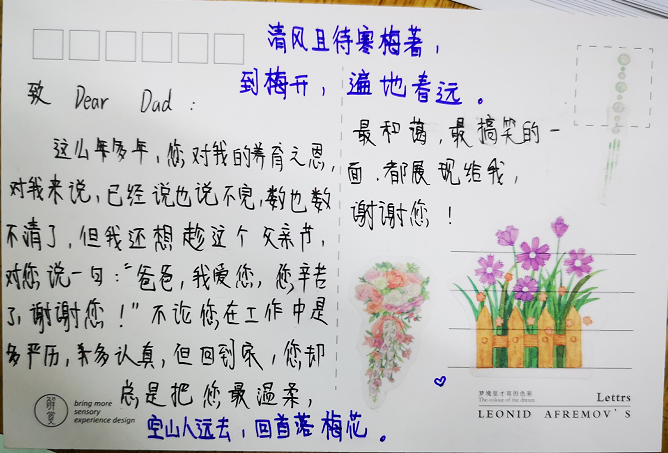 清风且待寒梅著，
到梅开，遍地春远。
致 Dear Dad：
这么年多年，您对我的养育之恩，
对我来说，已经说也说不完，数也数
不清了，但我还想趁这个父亲节，
对您说一句：“爸爸，我爱您，您辛苦
了，谢谢您！”不论您在工作中是
多严厉，多多认真，但回到家，您却
总是把您最温柔，
最和蔼，最搞笑的一
面，都展现给我，
谢谢您！
空山人远去，回首落梅花。
解憂
bring more
sensory
experience design
梦境里才有的色彩
The colour of the dream
Lettrs
LEONID AFREMOV'S